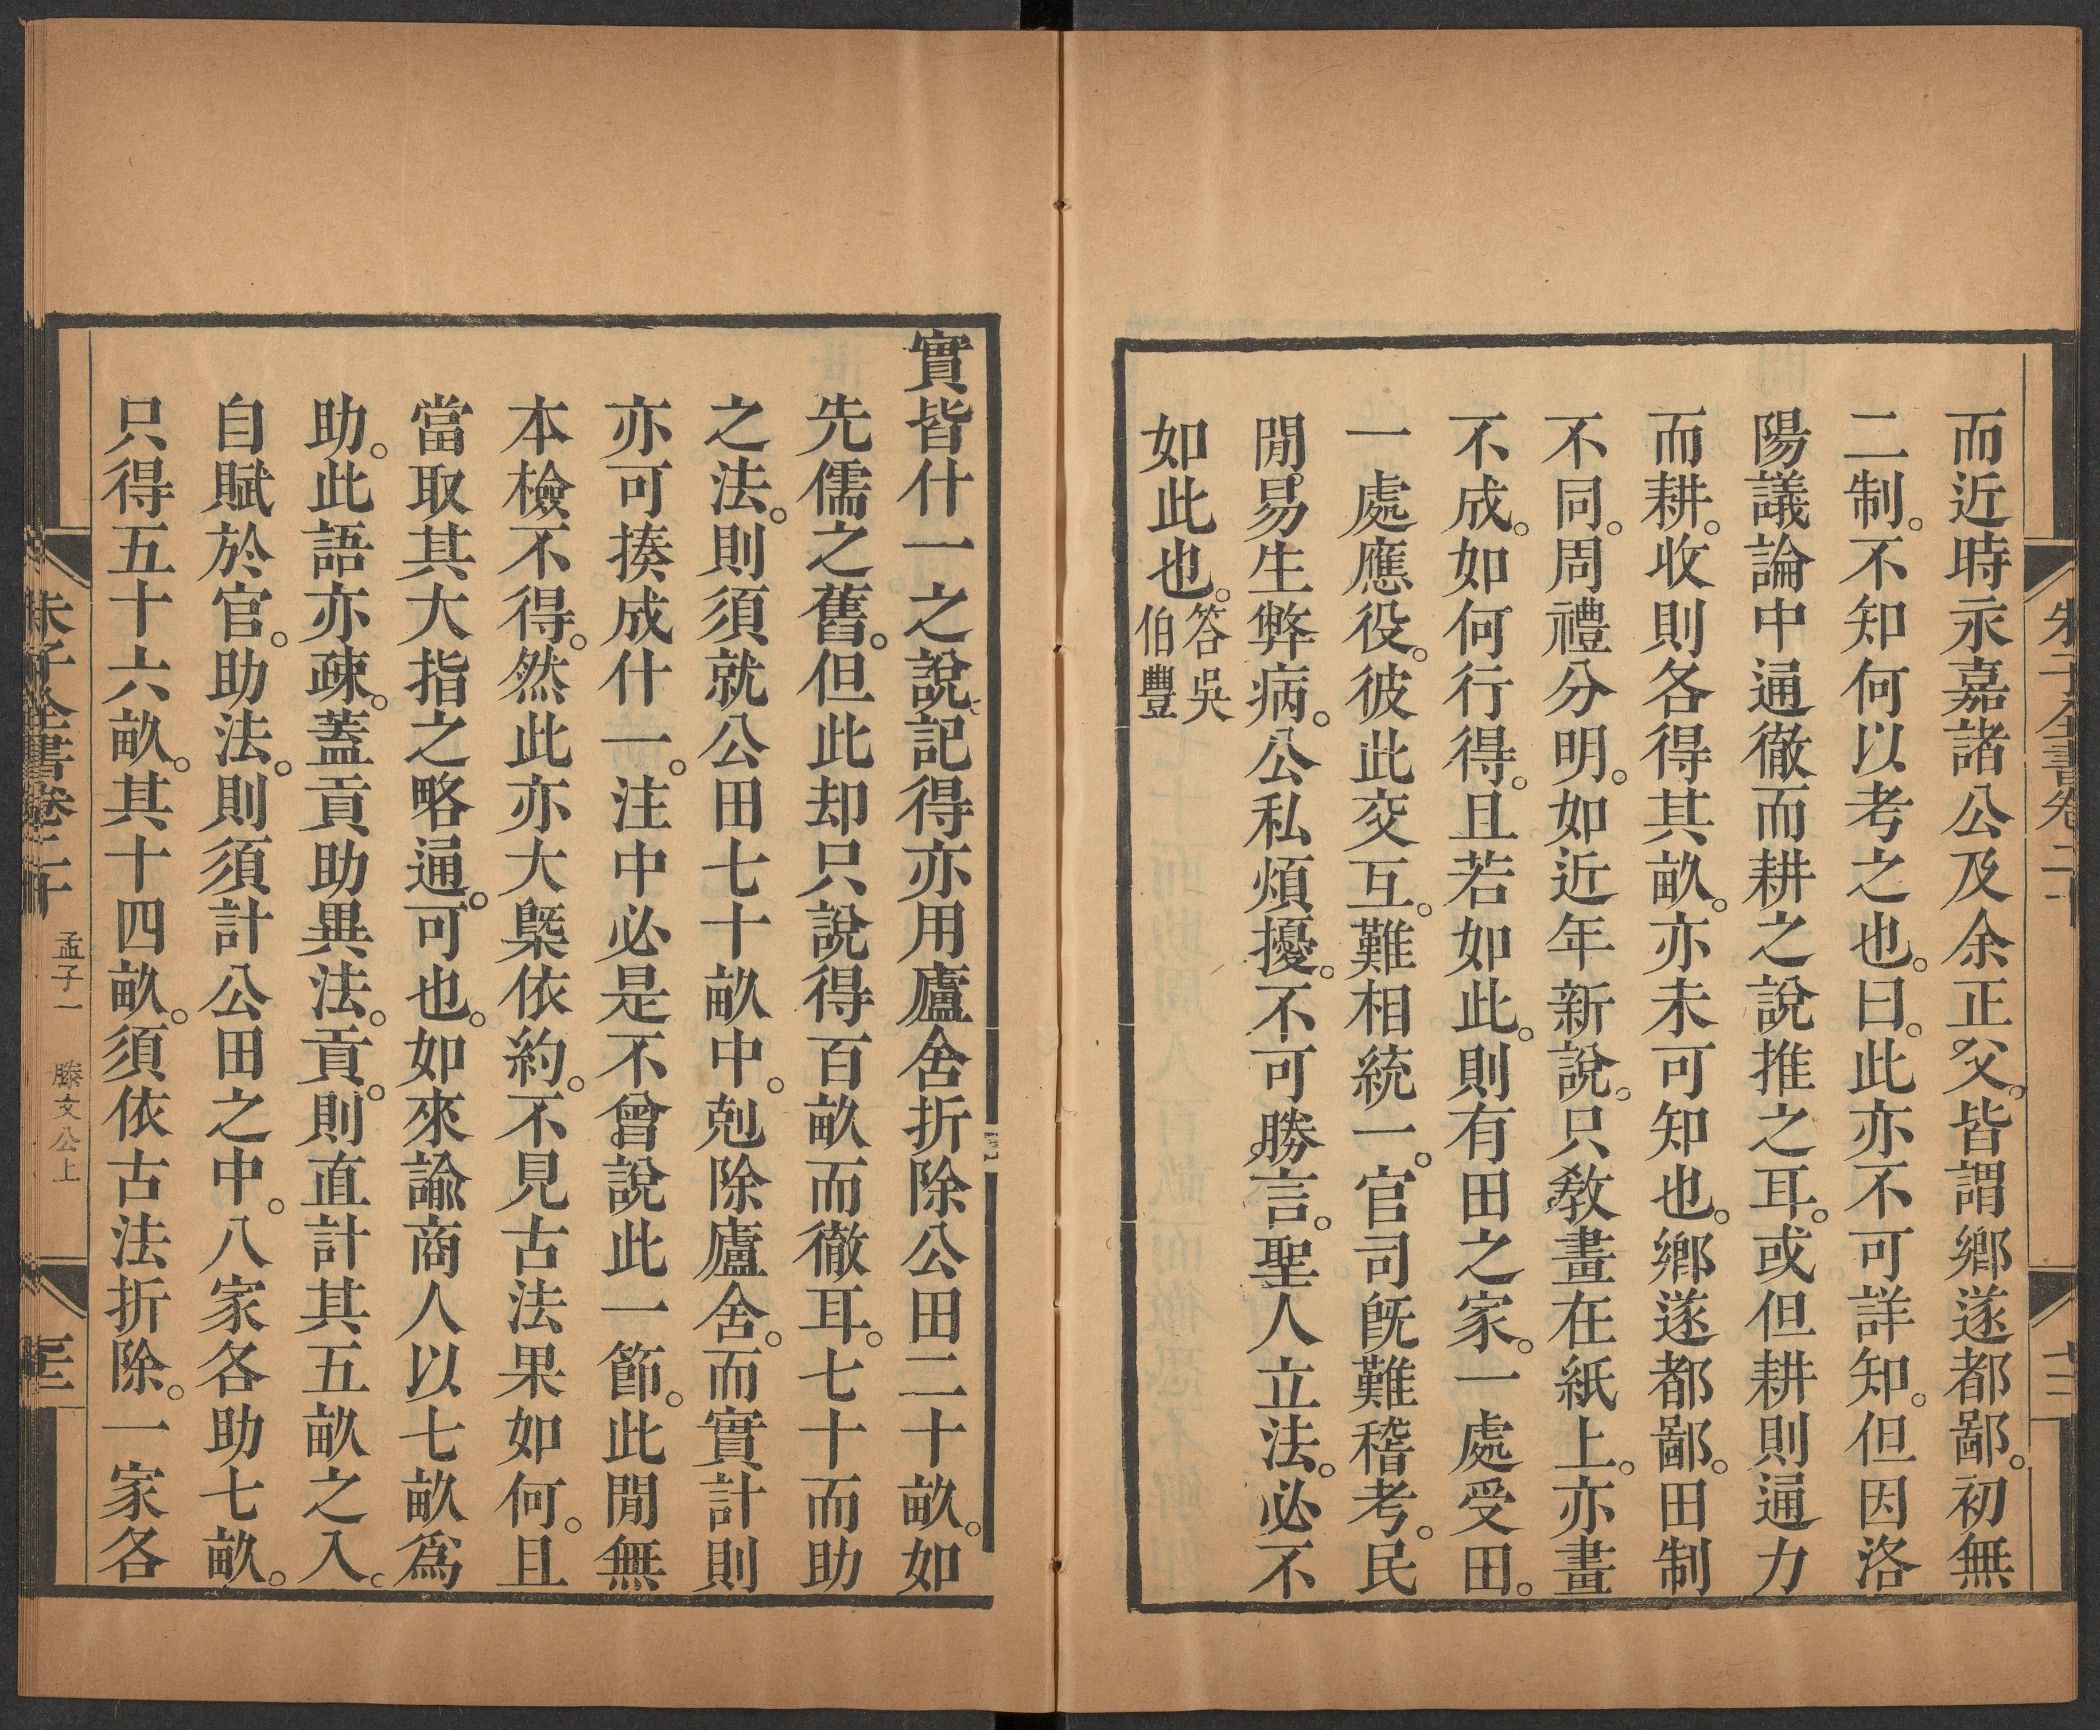 而近時永嘉諸公及余正父。皆謂鄉遂都鄙。初無
二制。不知何以考之也。曰。此亦不可詳知。但因洛
陽議論中通徹而耕之說推之耳。或但耕則通力
而耕。收則各得其畝。亦未可知也。鄉遂都鄙。田制
不同。周禮分明。如近年新說。只敎畫在紙上。亦畫
不成。如何行得。且若如此。則有田之家。一處受田。
一處應役。彼此交互。難相統一。官司旣難稽考。民
閒。易生弊病。公私煩擾。不可勝言。聖人立法。必不
如此也。答吳伯豐
實皆什一之說。記得亦用廬舍折除公田二十畝。如
先儒之舊。但此却只說得百畝而徹耳。七十而助
之法。則須就公田七十畝中。剋除廬舍。而實計則
亦可揍成什一。注中必是不曾說此一節。此閒無
本檢不得。然此亦大槩依約。不見古法果如何。且
當取其大指之略通。可也。如來諭商人以七畝爲
助。此語亦疎。蓋貢助異法。貢。則直計其五畝之入。
自賦於官。助法。則須計公田之中。八家各助七畝。
只得五十六畝。其十四畝。須依古法折除。一家各
朱子全書卷二十 孟子一 滕文公上